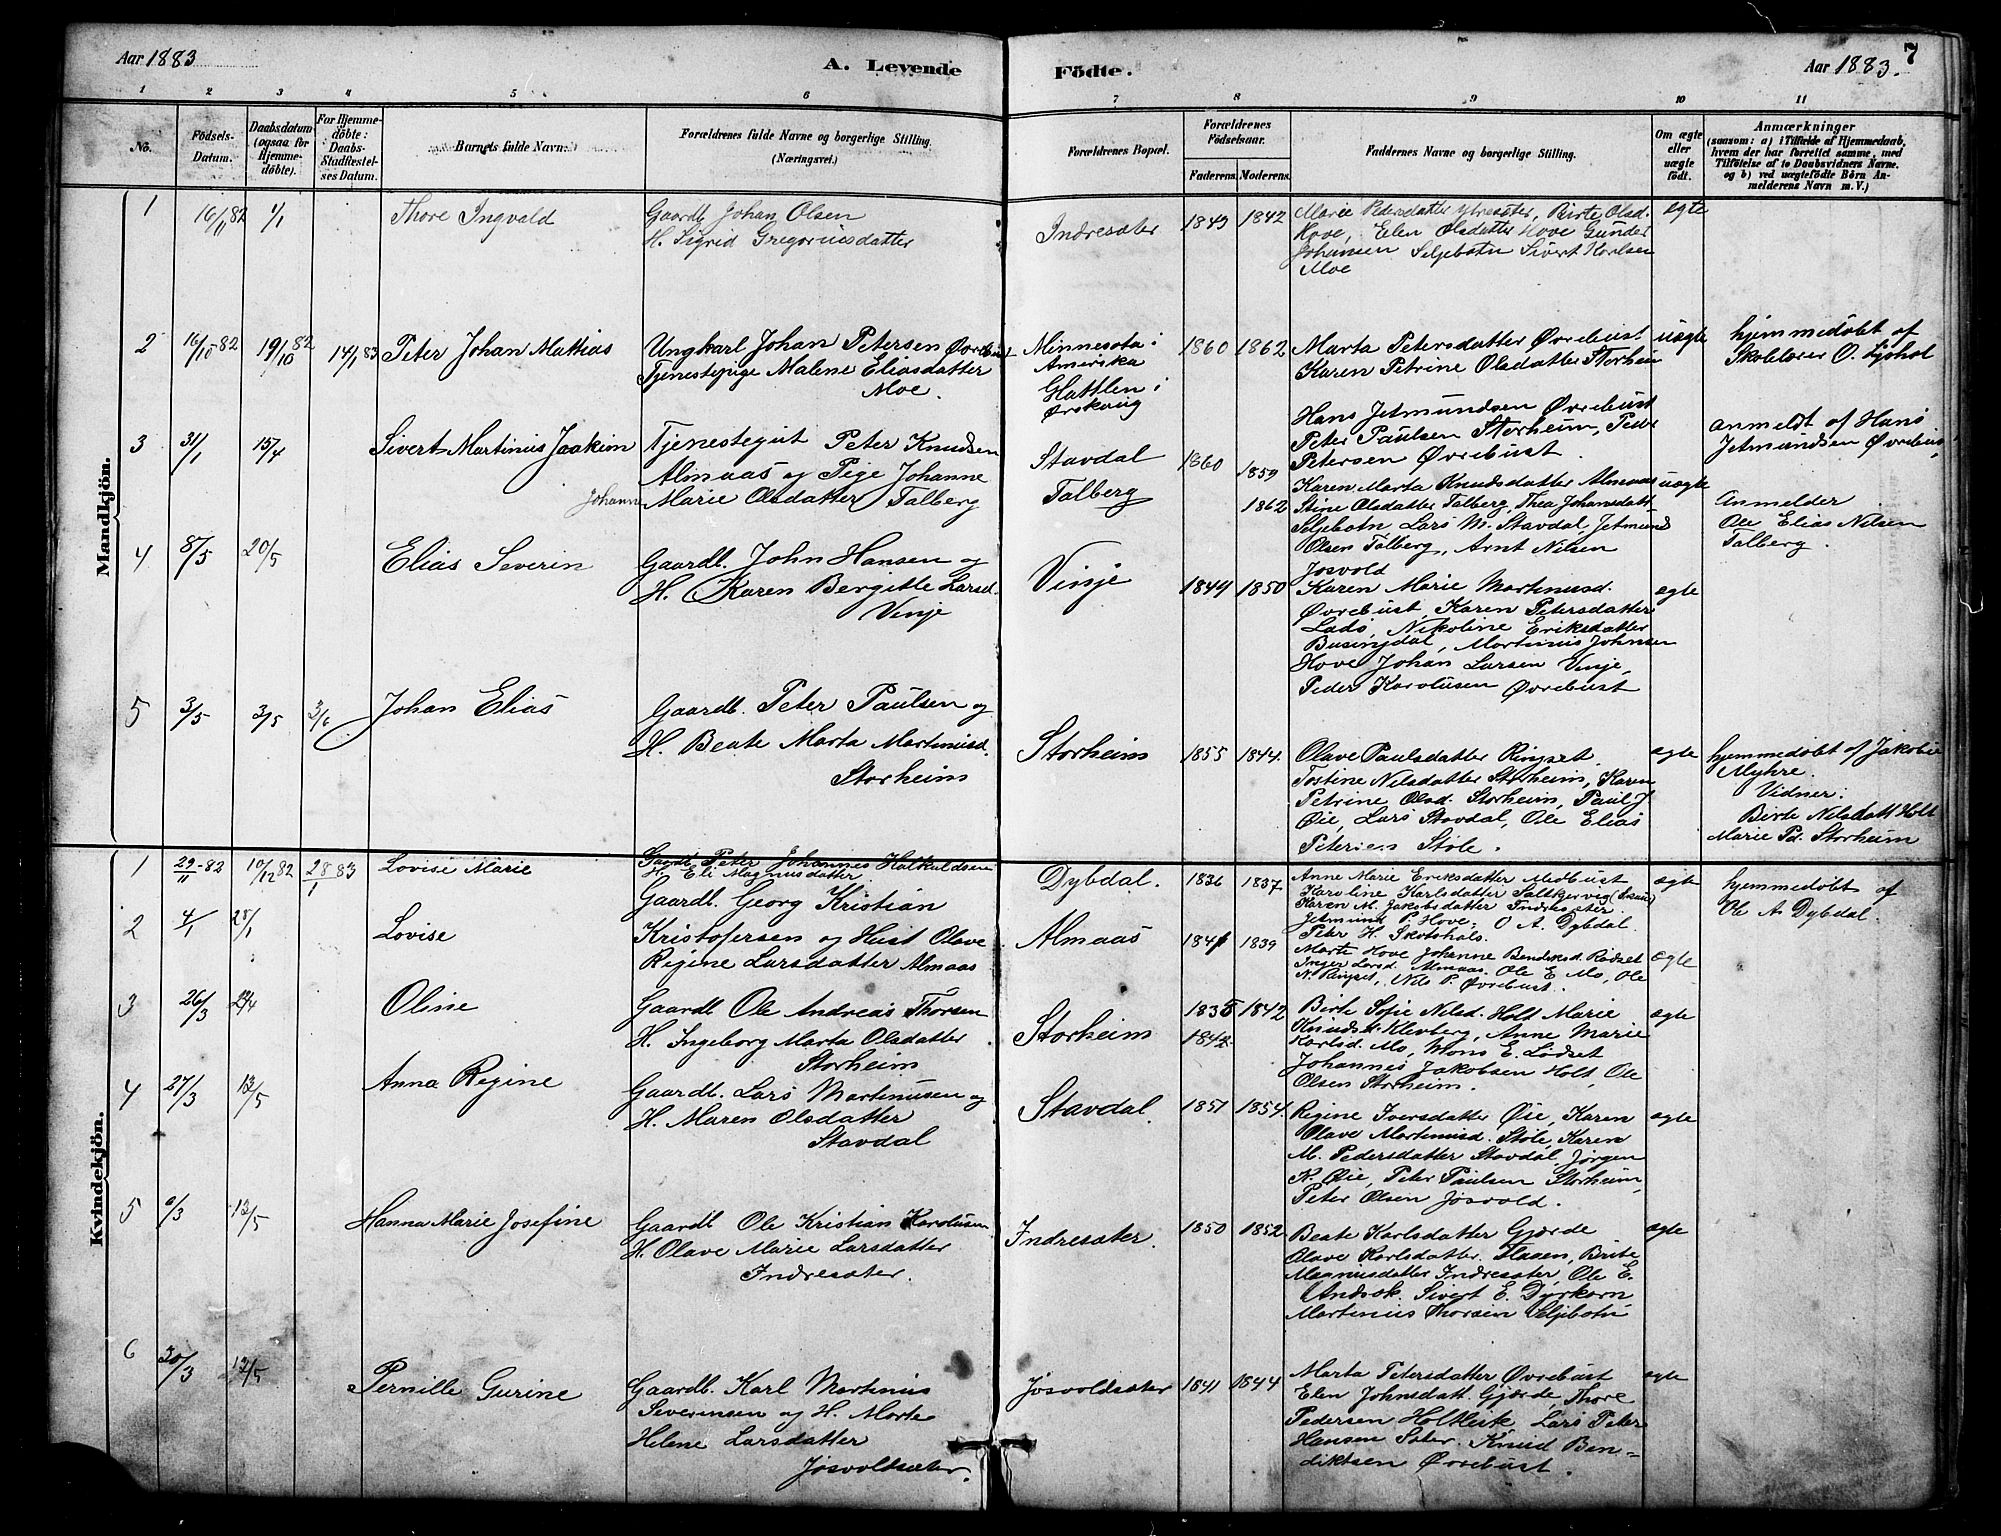 Aar 1883
A. Levende
Födte.
Aar 1883.
7
1 2 3 4 5 6 7 8 9 10 11
No.
Födsels-
Datum.
Daabsdatum
(ogsaa for
Hjemme-
döbte).
For Hjemme-
döbte:
Daabs-
Stadfæstel-
ses Datum.
Barnets fulde Navn.
Forældrenes fulde Navne og borgerlige Stilling.
(Næringsvei.)
Forældrenes Bopæl.
Forældrenes
Födselsaar.
Faderens. Moderens.
Faddernes Navne og borgerlige Stilling.
Om ægte
eller
uægte
födt.
Anmærkninger
(saasom: a) i Tilfælde af Hjemmedaab,
hvem der har forrettet samme, med
Tilföielse af to Daabsvidners Navne.
og b) ved uægtefödte Börn An-
melderens Navn m. V.)
Mandkjön.
1
16/11 82
1/1
Thore Ingvald
Gaardb. Johan Olsen
H. Sigrid Gregoriusdatter
Indresæter
1849 1842
Marie Pedersdatter Ytresæter, Birte Olsd.
Hove, Elen Olsdatter Hove Gunder
Johansen Seljebotn Sivert Karlsen
Moe
ægte
2
16/10 82
19/10 82
14/1 83
Peter Johan Mathias
Ungkarl Johan Petersen Øvrebust
Tjenestepige Malene Eliasdatter
Moe.
Minnesota i
Amerika
Hattlen i
Ørskoug
1860 1862
Marta Petersdatter Øvrebust
Karen Petrine Olsdatter Storheim
Hans Jetmundsen Øvrebust
Peter Paulsen Storheim, Peder
Petersen Øvrebust.
uægte
hjemmedøbt af
Skolelærer O. Sjøhol
anmeldt af Hans
Jetmundsen Øvrebust
3
31/1
15/4
Sivert Martinus Joakim
Tjenestegut Peter Knudsen
Almaas og Pige Johanne
Johanne
Marie Olsdatter Talberg
Stavdal
Talberg
1860 1859
1862
Karen Marta Knudsdatter Almaas
Stine Olsdatter Talberg, Thea Johansdatt.
Seljebotn Lars M. Stavdal, Jetmund
Olsen Talberg, Arnt Nilsen
Josvold
uægte
Anmelder
Ole Elias Nilsen
Talberg.
4
8/5
20/5
Elias Severin
Gaardb. John Hansen og
H. Karen Bergitte Larsd.
Vinje
Vinje
1849 1850
Karen Marie Martinusd.
Øvrebust, Karen Petersdatter
Ladø, Nikoline Eriksdatter
Busingdal, Martinus Johnsen
Hove Johan Larsen Vinje,
Peder Karolusen Øvrebust
ægte
5
3/5
3/5
3/6
Johan Elias
Gaardb. Peter Paulsen og
H. Beate Marta Martinusd.
Storheim
Storheim
1855 1844.
Olave Paulsdatter Ringset.
Tostine Nilsdatter Storheim, Karen
Petrine Olsd. Storheim, Paul J.
Øie, Lars Stavdal, Ole Elias
Petersen Støle.
ægte
hjemmedøbt af Jakobie
Myhre.
Vidner:
Birte Nilsdatt. Holt
Marie Pd. Storheim
Kvindekjön.
1
29/11-82
10/12 82
28/1 83
Lovise Marie
Gaardb. Peter Johannes Halkuldsen
H. Eli Magnusdatter
Dybdal.
1836 1837
Anne Marie Eriksdatter Medbust
Karoline Karlsdatter
Karen M. Jakobsdatter Indresæter
Jetmund P. Hove, O A. Dybdal.
Peter H. Skotshals.
ægte
hjemmedøbt af
Ole A. Dybdal.
2
4/1
28/1
Lovise
Gaardb. Georg Kristian
Kristofersen og Hust Olave
Regine Larsdatter Almaas
Almaas
1841 1839
Marte Hove Johanne Bendiksd. Rødset
Inger Larsd. Almaas. Ole E. Mo, Ole
N. Ringset, Nils P. Øvrebust.
ægte
3
26/3
Oline
Gaardb Ole Andreas Thorsen
H. Ingeborg Marta Olsdatter
Storheim
Storheim
1835 1842
1842
Birte Sofie Nilsd. Holt Marie
Knudsd. Klevberg, Anne Marie
Karlsd. Mo, Mons E. Lødset
Johannes Jakobsen Holt, Ole
Olsen Storheim.
ægte
4
27/3
13/5
Anna Regine
Gaardb. Lars Martinusen og
H. Maren Olsdatter
Stavdal
Stavdal.
1851 1854.
Regine Iversdatter Øie, Karen
Olave Martinusd. Støle, Karen
M. Pedersdatter Stavdal Jørgen
K. Øie, Peter Paulsen Storheim,
Peter Olsen Josvold.
ægte
5
13/5
Hanna Marie Josefine
Gaardb Ole Kristian Karolusen
H. Olave Marie Larsdatter
Indresæter.
Indresæter.
1850 1852
Beate Karlsdatter Gjærde
Olave Karlsdatter. Flaaen, Brite
Magnusdatter Indresæter, Ole E.
Andsok. Sivert E. Dyrkorn
Martinus Thorsen Seljebotn
ægte
6
30/3
13/5
Pernille Gurine
Gaardb. Karl Martinus
Severinsen og H. Marte
Helene Larsdatter
Jøsvoldsæter.
Jøsvoldsæter
1841 1844
Marta Petersdatter Øvrebust
Elen Johnsdatt. Gjærde, Thore
Pedersen Holtleite Lars Peter
Hansen Sæter. Knud Ben-
diktsen Øvrebust.
ægte